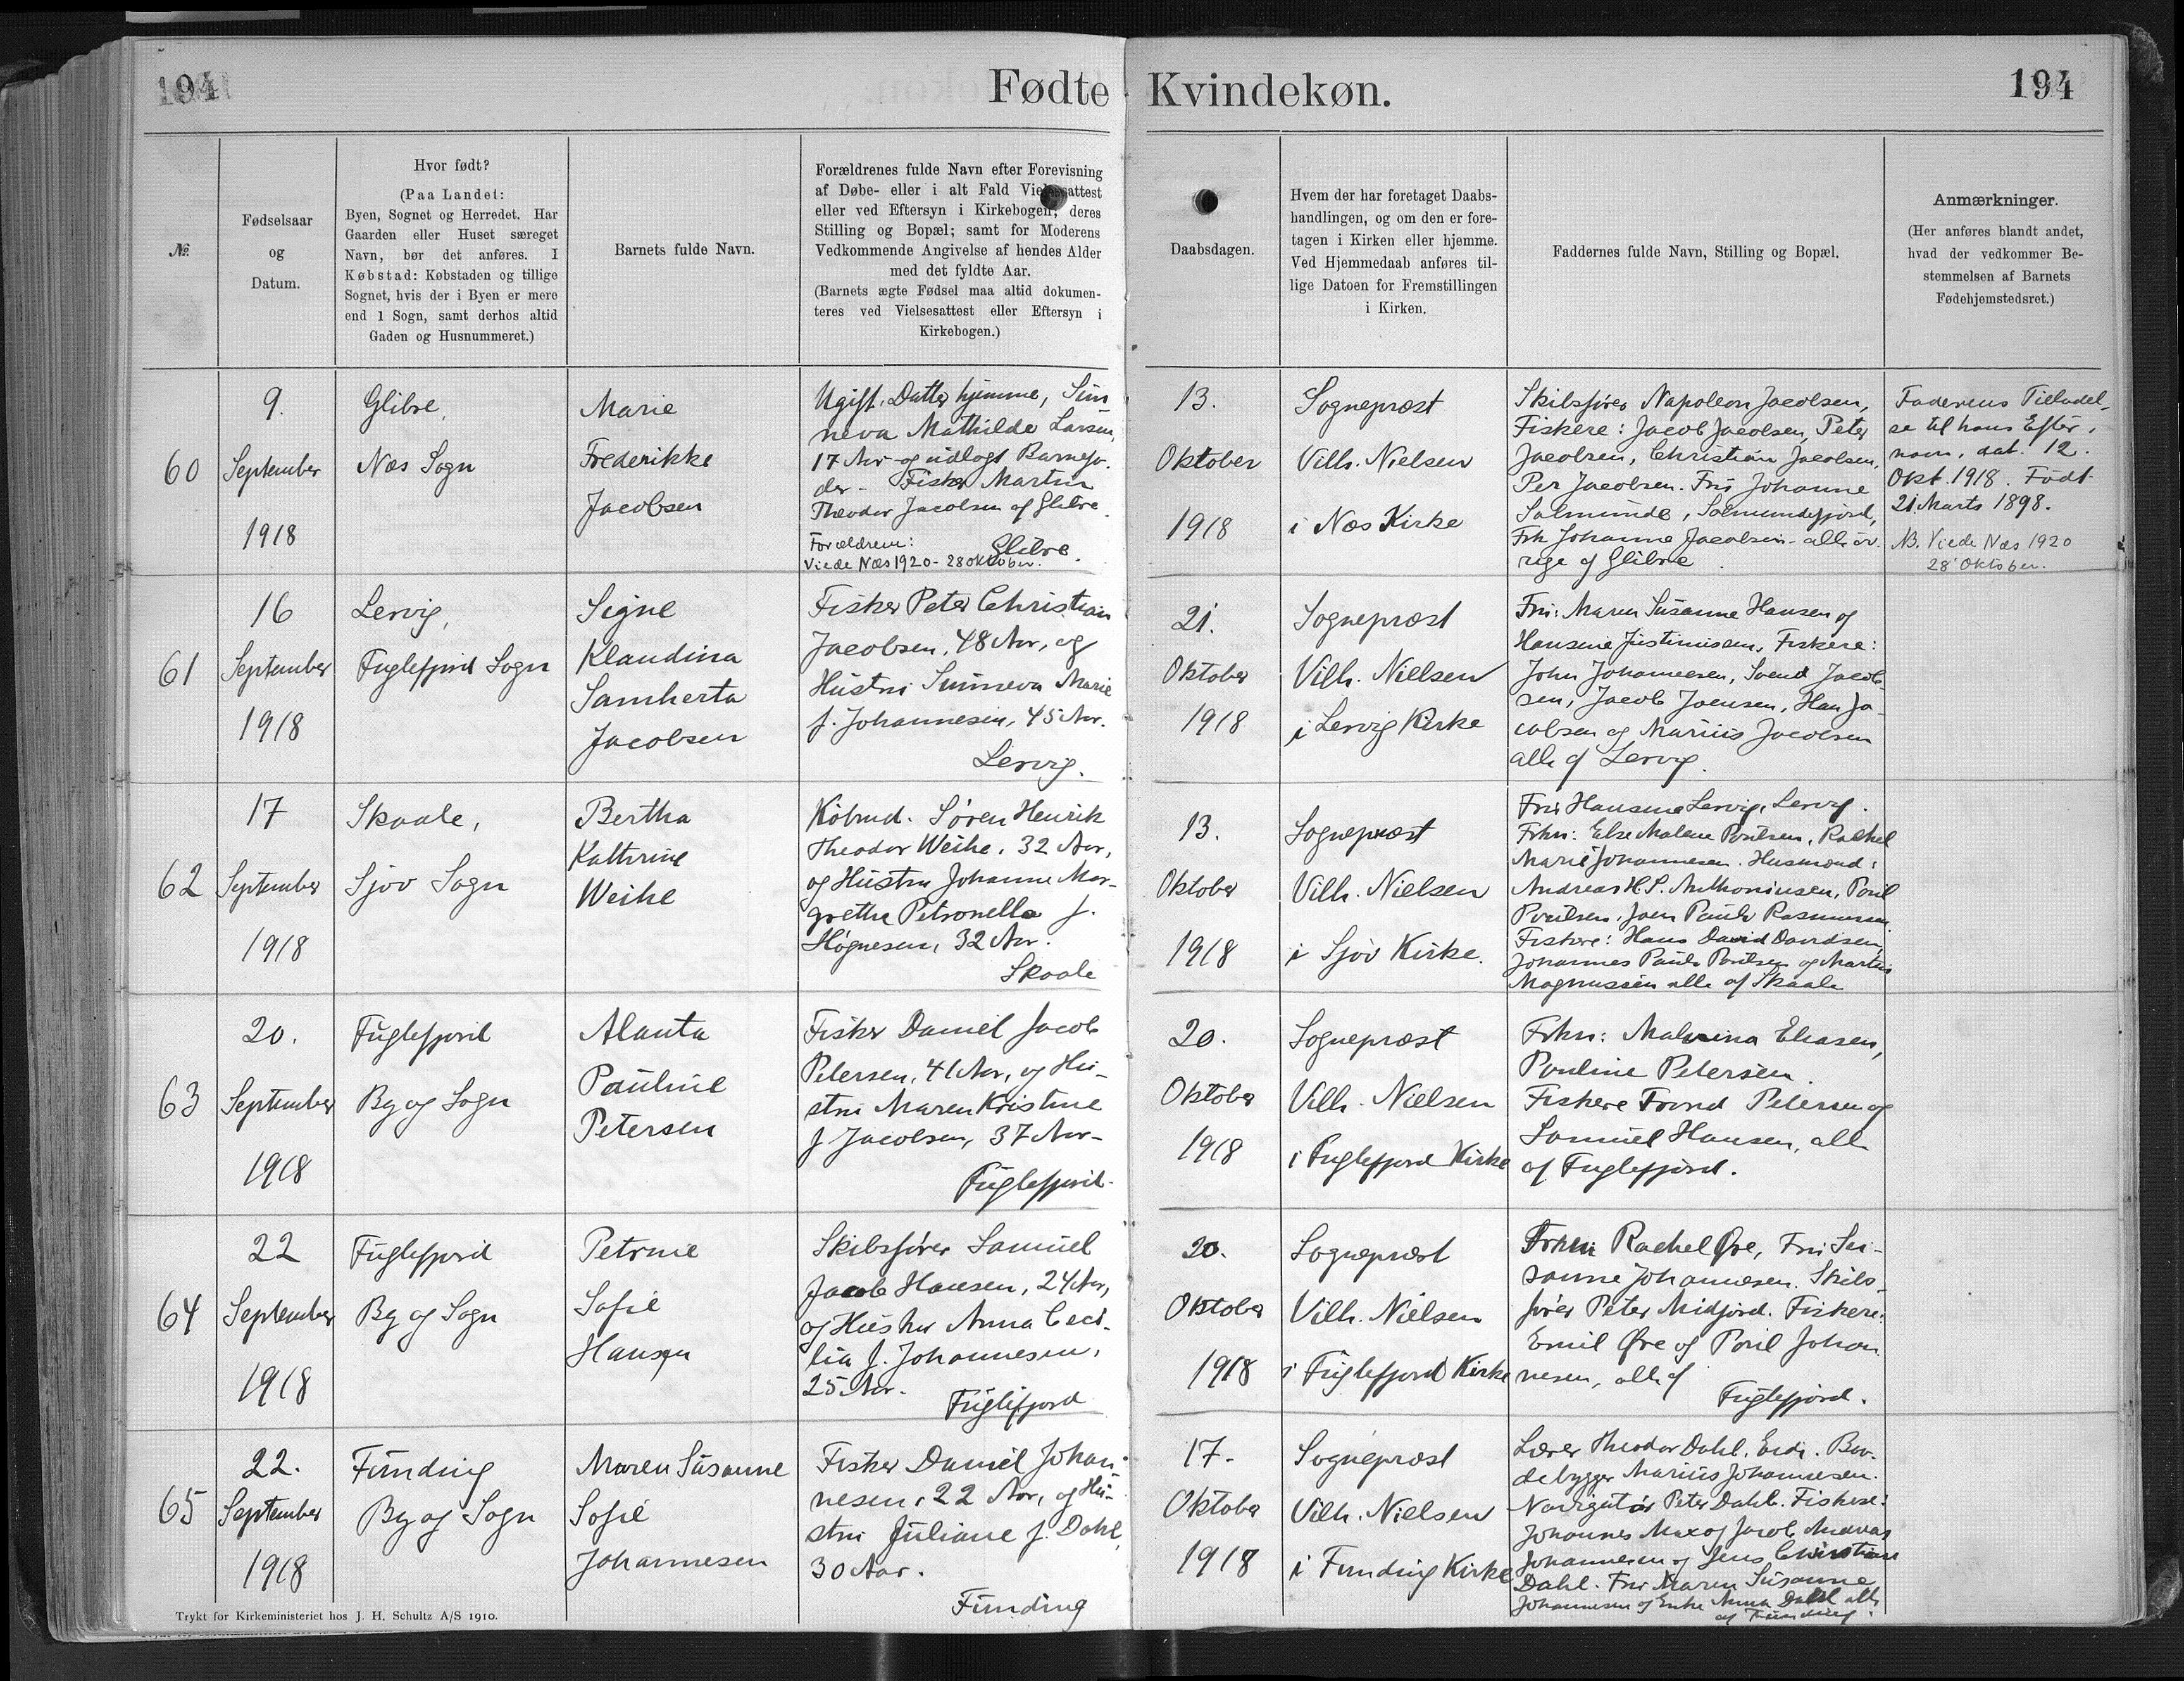 194
Fødte
Kvindekøn.
194
№
Fødselsaar
og
Datum.
Hvor født?
(Paa Landet:
Byen, Sognet og Herredet. Har
Gaarden eller Huset særeget
Navn, bør det anføres. I
Købstad: Købstaden og tillige
Sognet, hvis der i Byen er mere
end 1 Sogn, samt derhos altid
Gaden og Husnummeret.)
Barnets fulde Navn.
Forældrenes fulde Navn efter Forevisning
af Døbe- eller i alt Fald Vielsesattest
eller ved Eftersyn i Kirkebogen, deres
Stilling og Bopæl; samt for Moderens
Vedkommende Angivelse af hendes Alder
med det fyldte Aar.
(Barnets ægte Fødsel maa altid dokumen-
teres ved Vielsesattest eller Eftersyn i
Kirkebogen.)
Daabsdagen.
Hvem der har foretaget Daabs-
handlingen, og om den er fore-
tagen i Kirken eller hjemme.
Ved Hjemmedaab anføres til-
lige Datoen for Fremstillingen
i Kirken.
Faddernes fulde Navn, Stilling og Bopæl.
Anmærkninger.
(Her anføres blandt andet,
hvad der vedkommer Be-
stemmelsen af Barnets
Fødehjemstedsret.)
60
9.
September
1918
Glibre,
Næs Sogn
Marie
Frederikke
Jacobsen
Ugift. Datter hjemme, Sun
neva Mathilde Larsen,
17 Aar og udlagt Barnefa-
der - Fisker Martin
Theodor Jacobsen af Glibre.
Forældrene:
Glibre.
Viede Næs 1920 - 28 oktober.
13.
Oktober
1918
Sognepræst
Vilh. Nielsen
i Næs Kirke
Skibsfører Napoleon Jacobsen,
Fiskere: Jacob Jacobsen, Peter
Jacobsen, Christian Jacobsen,
Per Jacobsen. Fru Johanne
Salmunde, Salmundefjord,
Frk Johanne Jacobsen - alle øv
rige af Glibre
Faderens Tilladel-
se til hans Efter-
navn, dat. 12.
Okt. 1918. Født
21. Marts 1898.
NB. Viede Næs 1920
28' Oktober.
61
16
September
1918
Lervig,
Fuglefjord Sogn
Signe
Klaudina
Samherta
Jacobsen
Fisker Peter Christian
Jacobsen, 48 Aar, og
Hustru Sunneva Marie
f. Johannesen, 45 Aar.
Lervig.
21.
Oktober
1918
Sognepræst
Vilh. Nielsen
i Lervig Kirke
Fru: Maren Susanne Hansen og
Hansine Justinusen, Fiskere:
John Johannesen, Svend Jacob-
sen, Jacob Joensen, Han Ja-
cobsen og Marius Jacobsen
alle af Lervig.
62
17
September
1918
Skaale,
Sjov Sogn
Bertha
Kathrine
Weihe
Købmd. Søren Henrik
Theodor Weihe, 32 Aar,
og Hustru Johanne Mar-
grethe Petronella f.
Høgnesen, 32 Aar.
Skaale
13.
Oktober
1918
Sognepræst
Vilh. Nielsen
i Sjov Kirke.
Fru Hansine Lervig, Lervig.
Frkn: Else Malene Poulsen, Rachel
Marie Johannesen. Husmænd:
Andreas H. S. Anthoniusen, Poul
Poulsen, Joen Pauli Rasmussen
Fiskere: Hans David Davidsen,
Johannes Pauli Poulsen og Martin
Magnussen alle af Skaale
63
20.
September
1918
Fuglefjord
By og Sogn
Alanta
Pauline
Petersen
Fisker Daniel Jacob
Petersen, 41 Aar, og Hu-
stru Maren Kristine
f Jacobsen, 37 Aar-
Fuglefjord.
20.
Oktober
1918
Sognepræst
Vilh. Nielsen
i Fuglefjord Kirke
Frkn: Malvina Eliasen,
Pauline Petersen.
Fiskere Trond Petersen og
Samuel Hansen, alle
af Fuglefjord.
64
22
September
1918
Fuglefjord
By og Sogn
Petrine
Sofie
Hansen
Skibsfører Samuel
Jacob Hansen, 24 Aar,
og Hustru Anna Ceci-
lia f. Johannesen,
25 Aar.
Fuglefjord
20.
Oktober
1918
Sognepræst
Vilh. Nielsen
i Fuglefjord Kirke
Frkn Rachel Øre, Fru Su-
sanne Johannesen. Skibs-
fører Peter Midjord. Fiskere:
Emil Øre og Poul Johan
nesen, alle af
Fuglefjord.
65
22.
September
1918
Funding
By og Sogn
Maren Susanne
Sofie
Johannesen
Fisker Daniel Johan-
nesen, 22 Aar, og Hu-
stru Juliane f. Dahl,
30 Aar.
Funding
17.
Oktober
1918
Sognepræst
Vilh. Nielsen
i Funding Kirke
Lærer Theodor Dahl, Eide. Baa-
debygger Marius Johannesen.
Navigatør Peter Dahl. Fiskere:
Johannes Max og Jacob Andreas
Johannesen og Jens Christian
Dahl. Fru Maren Susanne
Johannesen og Enke Anna Dahl alle
af Funding.
Trykt for Kirkeministeriet hos J. H. Schultz A/S 1910.